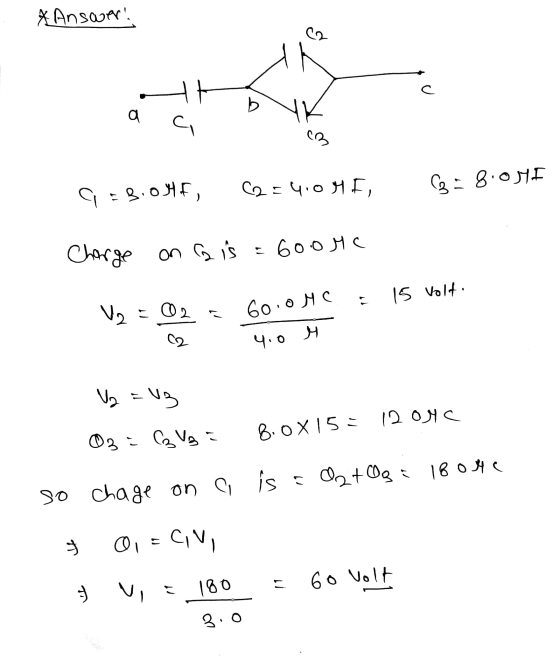 *Answer:
C2
a
C1
b
C3
c
C1 = 3.0 μF, C2 = 4.0 μF, C3 = 8.0 μF
Charge on C2 is = 60.0 μC
V2 = Q2/C2 = 60.0 μC/4.0 μ = 15 Volt.
V2 = V3
Q3 = C3V3 = 8.0 X 15 = 120 μC
So chage on C1 is = Q2+Q3 = 180 μC
⇒ Q1 = C1V1
⇒ V1 = 180/3.0 = 60 Volt